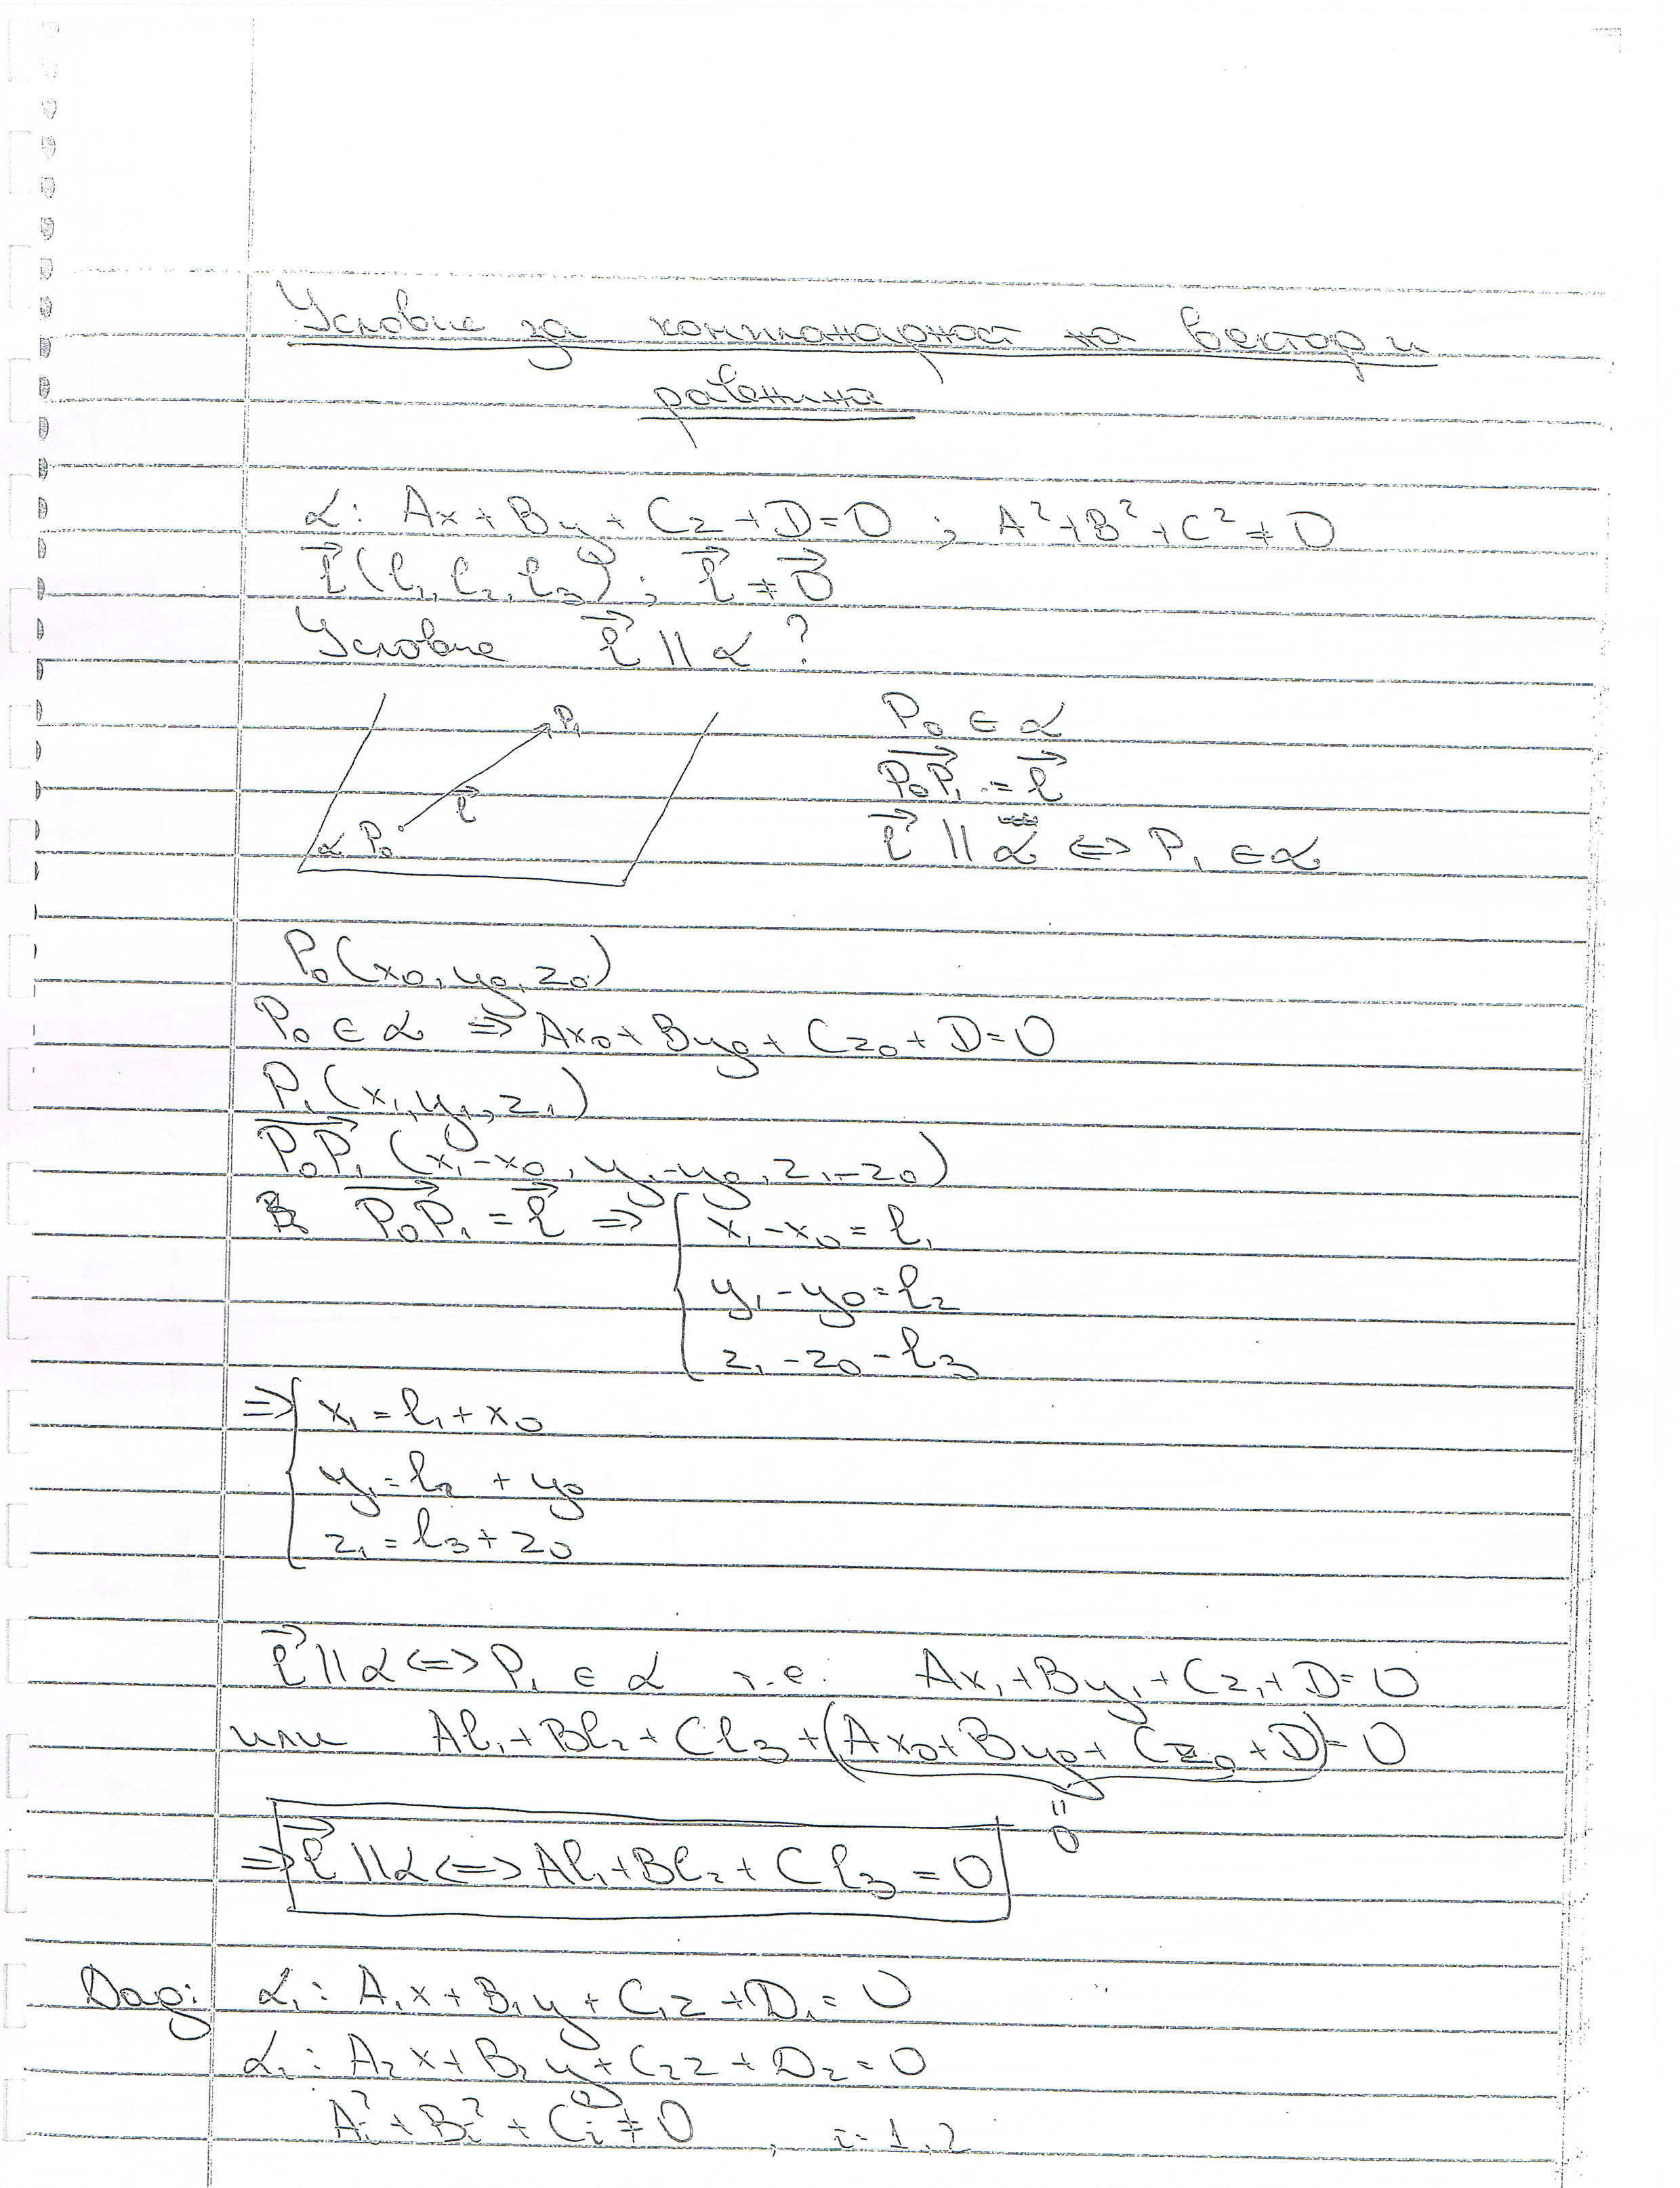 Условие за компланарност на вектор и
равнина
α: Ax + By + Cz + D = 0 ; A² + B² + C² ≠ 0
l⃗ (l₁, l₂, l₃) ; l⃗ ≠ 0⃗
Условие l⃗ || α ?
P₁
P₀ ∈ α
P₀P₁⃗ = l⃗
l⃗
α P₀
l⃗ || α ⇔ P₁ ∈ α
P₀ (x₀, y₀, z₀)
P₀ ∈ α ⇒ Ax₀ + By₀ + Cz₀ + D = 0
P₁ (x₁, y₁, z₁)
P₀P₁⃗ (x₁ - x₀, y₁ - y₀, z₁ - z₀)
P₀P₁⃗ = l⃗ ⇒ { x₁ - x₀ = l₁
y₁ - y₀ = l₂
z₁ - z₀ = l₃
⇒ { x₁ = l₁ + x₀
y₁ = l₂ + y₀
z₁ = l₃ + z₀
l⃗ || α ⇔ P₁ ∈ α т.е. Ax₁ + By₁ + Cz₁ + D = 0
или Al₁ + Bl₂ + Cl₃ + (Ax₀ + By₀ + Cz₀ + D) = 0
"
0
⇒ l⃗ || α ⇔ Al₁ + Bl₂ + Cl₃ = 0
α₁: A₁x + B₁y + C₁z + D₁ = 0
α₂: A₂x + B₂y + C₂z + D₂ = 0
Aᵢ² + Bᵢ² + Cᵢ² ≠ 0 , i = 1,2